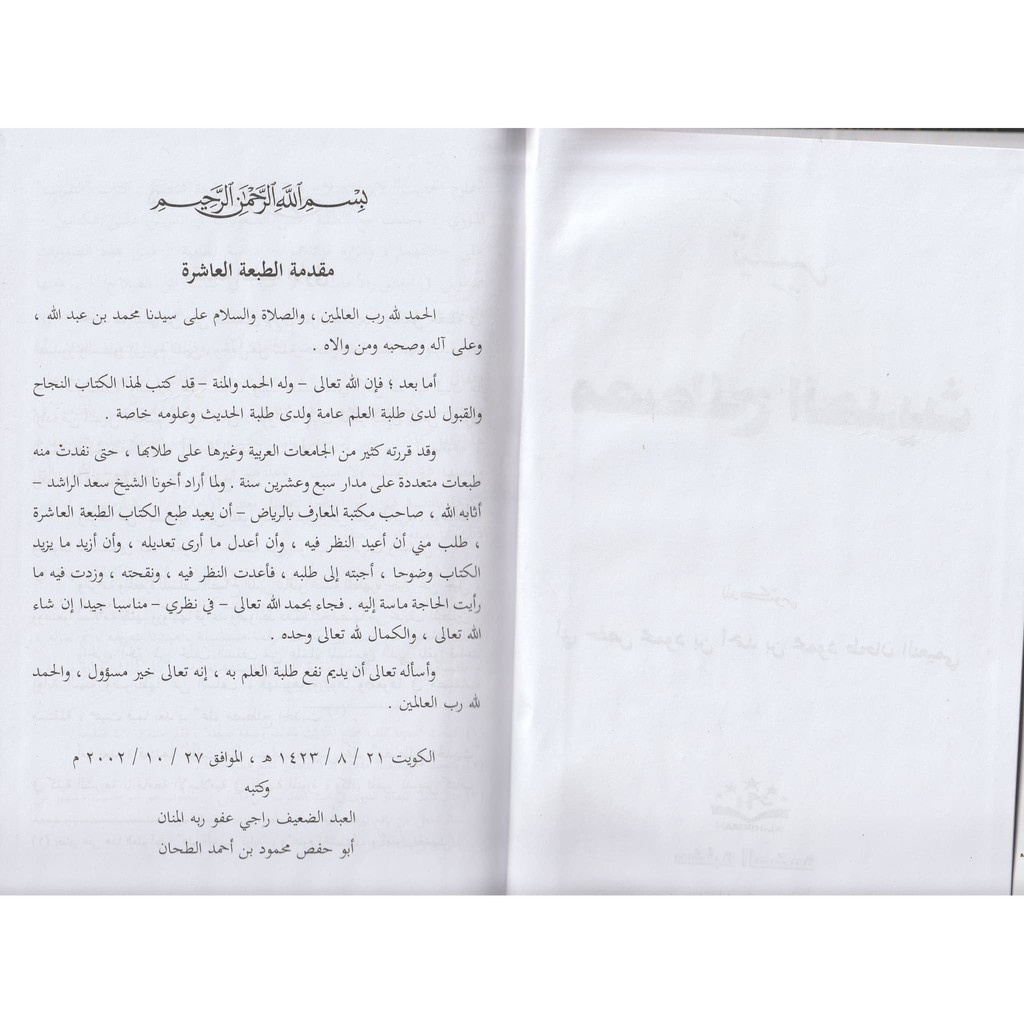 بِسْمِ اللَّهِ الرَّحْمَٰنِ الرَّحِيمِ
مقدمة الطبعة العاشرة
الحمد لله رب العالمين ، والصلاة والسلام على سيدنا محمد بن عبد الله ،
وعلى آله وصحبه ومن والاه .
أما بعد ؛ فإن الله تعالى – وله الحمد والمنة – قد كتب لهذا الكتاب النجاح
والقبول لدى طلبة العلم عامة ولدى طلبة الحديث وعلومه خاصة .
وقد قررته كثير من الجامعات العربية وغيرها على طلابها ، حتى نفدتْ منه
طبعات متعددة على مدار سبع وعشرين سنة . ولما أراد أخونا الشيخ سعد الراشد –
أثابه الله ، صاحب مكتبة المعارف بالرياض – أن يعيد طبع الكتاب الطبعة العاشرة
، طلب مني أن أعيد النظر فيه ، وأن أعدل ما أرى تعديله ، وأن أزيد ما يزيد
الكتاب وضوحا ، أجبته إلى طلبه ، فأعدت النظر فيه ، ونقحته ، وزدت فيه ما
رأيت الحاجة ماسة إليه . فجاء بحمد الله تعالى – في نظري – مناسبا جيدا إن شاء
الله تعالى ، والكمال لله تعالى وحده .
وأسأله تعالى أن يديم نفع طلبة العلم به ، إنه تعالى خير مسؤول ، والحمد
لله رب العالمين .
الكويت ٢١ / ٨ / ١٤٢٣ هـ ، الموافق ٢٧ / ١٠ / ٢٠٠٢ م
وكتبه
العبد الضعيف راجي عفو ربه المنان
أبو حفص محمود بن أحمد الطحان